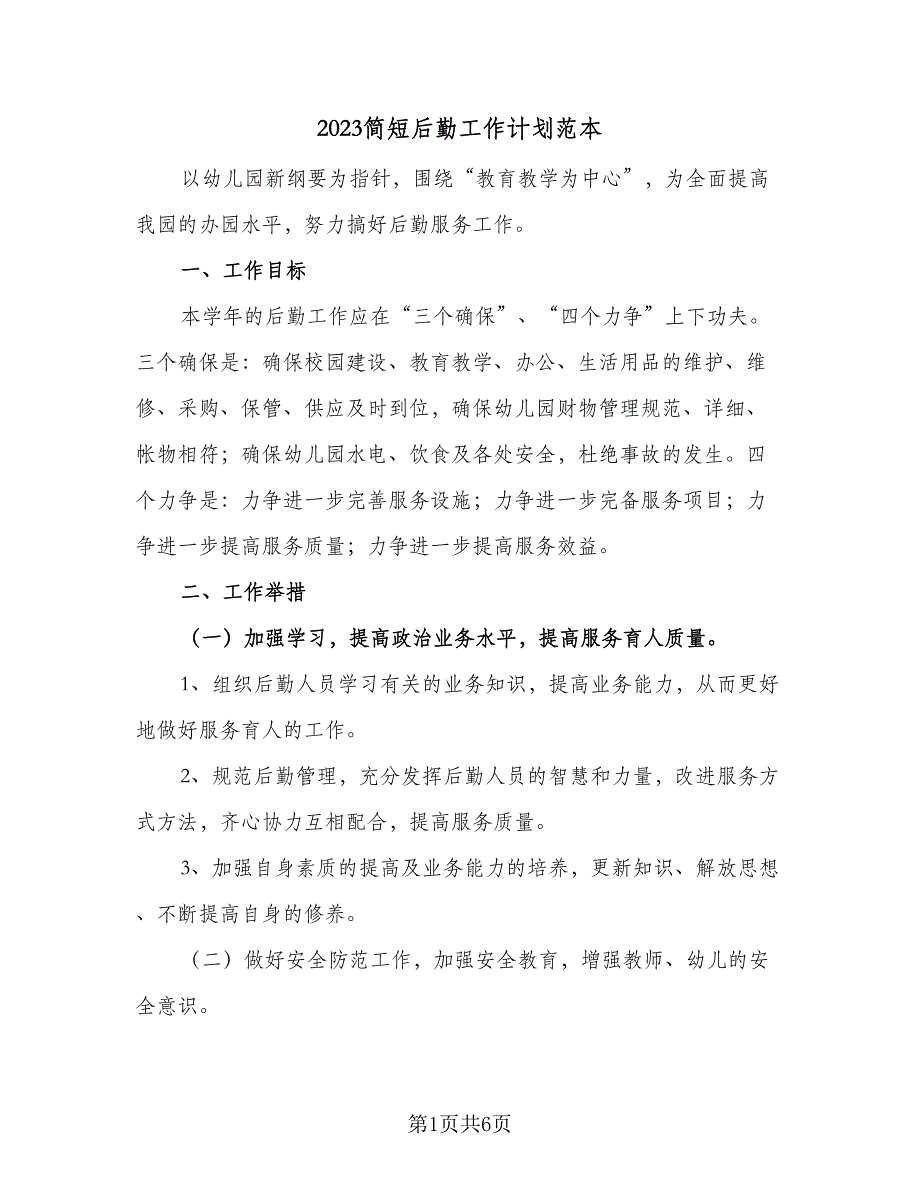 2023简短后勤工作计划范本
以幼儿园新纲要为指针，围绕“教育教学为中心”，为全面提高
我园的办园水平，努力搞好后勤服务工作。
一、工作目标
本学年的后勤工作应在“三个确保”、“四个力争”上下功夫。
三个确保是：确保校园建设、教育教学、办公、生活用品的维护、维
修、采购、保管、供应及时到位，确保幼儿园财物管理规范、详细、
帐物相符；确保幼儿园水电、饮食及各处安全，杜绝事故的发生。四
个力争是：力争进一步完善服务设施；力争进一步完备服务项目；力
争进一步提高服务质量；力争进一步提高服务效益。
二、工作举措
（一）加强学习，提高政治业务水平，提高服务育人质量。
1、组织后勤人员学习有关的业务知识，提高业务能力，从而更好
地做好服务育人的工作。
2、规范后勤管理，充分发挥后勤人员的智慧和力量，改进服务方
式方法，齐心协力互相配合，提高服务质量。
3、加强自身素质的提高及业务能力的培养，更新知识、解放思想
、不断提高自身的修养。
（二）做好安全防范工作，加强安全教育，增强教师、幼儿的安
全意识。
第1页共6页